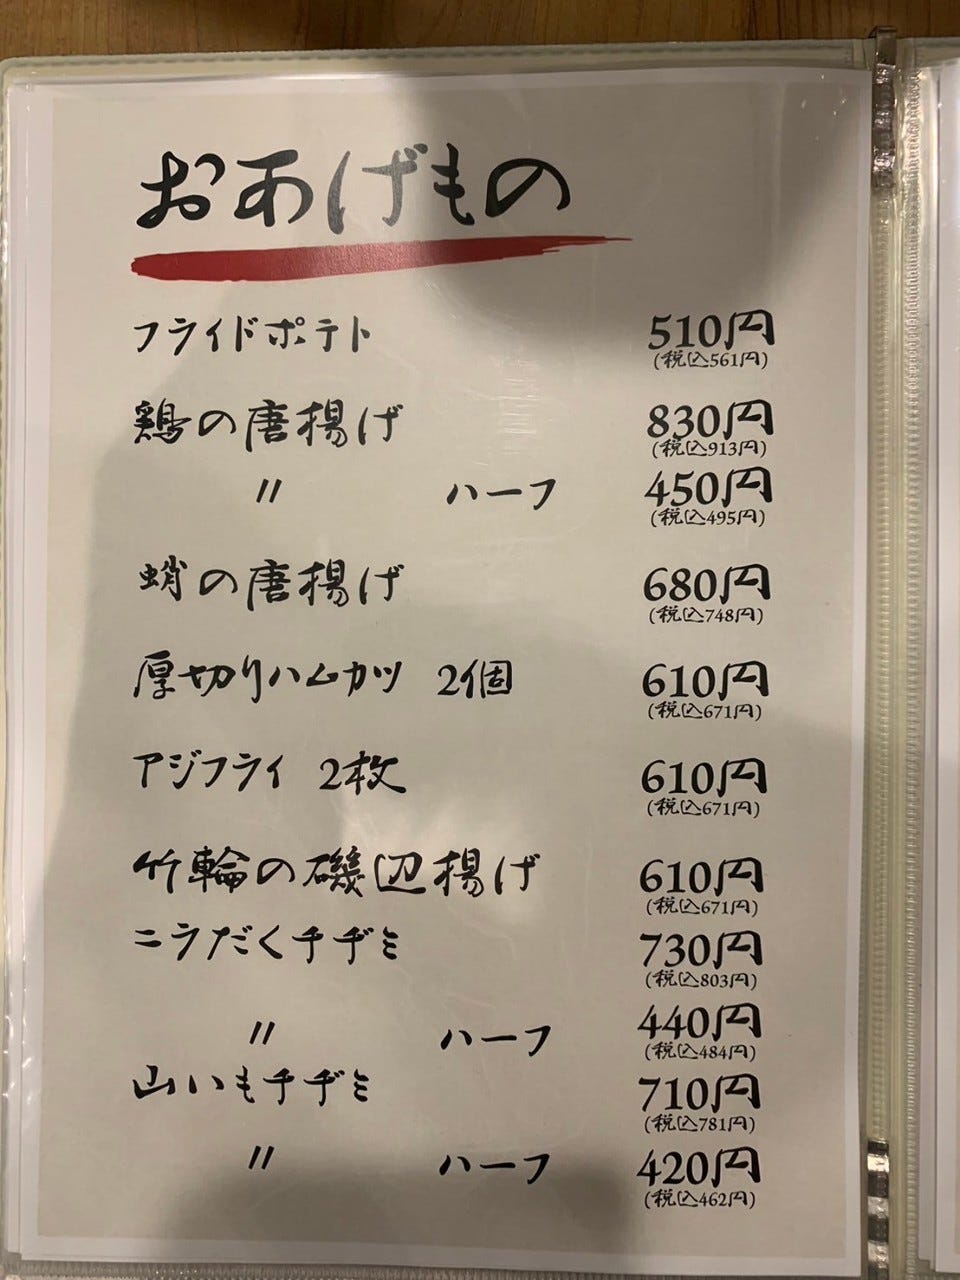 おあげもの
フライドポテト 510円
(税込561円)
鶏の唐揚げ 830円
(税込913円)
〃 ハーフ 450円
(税込495円)
蛸の唐揚げ 680円
(税込748円)
厚切りハムカツ 2個 610円
(税込671円)
アジフライ 2枚 610円
(税込671円)
竹輪の磯辺揚げ 610円
(税込671円)
ニラだくチヂミ 730円
(税込803円)
〃 ハーフ 440円
(税込484円)
山いもチヂミ 710円
(税込781円)
〃 ハーフ 420円
(税込462円)